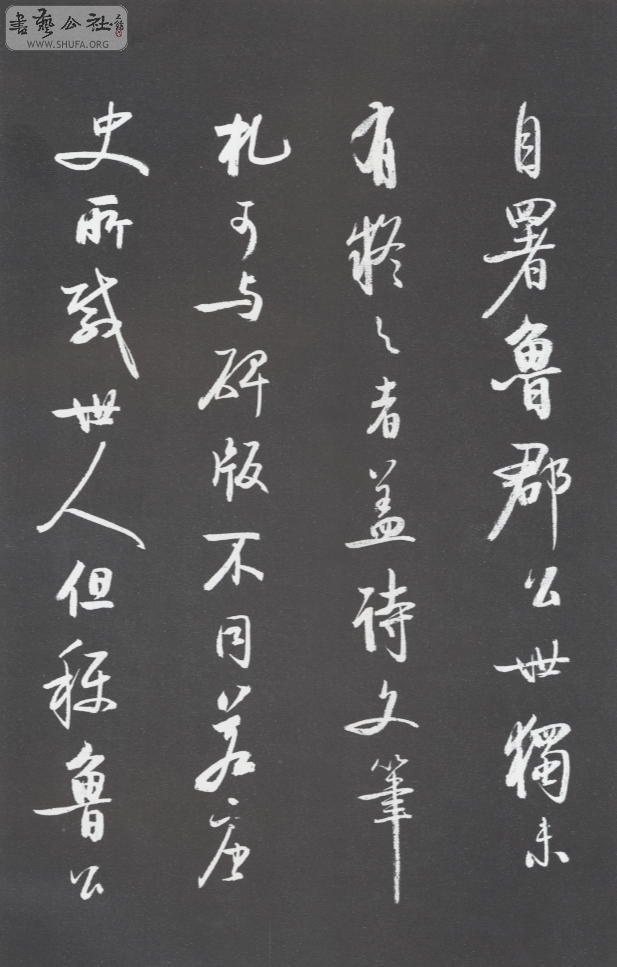 書藝公社
WWW.SHUFA.ORG
自署魯郡公世獨未
有疑之者盖詩文筆
札可与碑版不同若
史所載世人但稱魯公